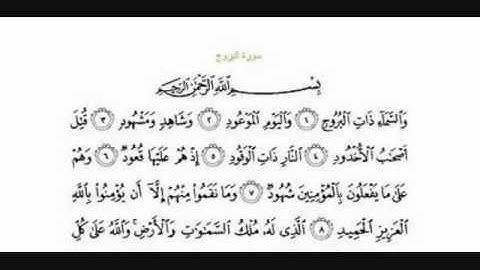 سورة البروج
بِسْمِ اللَّهِ الرَّحْمَٰنِ الرَّحِيمِ
وَالسَّمَاءِ ذَاتِ الْبُرُوجِ ١ وَالْيَوْمِ الْمَوْعُودِ ٢ وَشَاهِدٍ وَمَشْهُودٍ ٣ قُتِلَ
أَصْحَابُ الْأُخْدُودِ ٤ النَّارِ ذَاتِ الْوَقُودِ ٥ إِذْ هُمْ عَلَيْهَا قُعُودٌ ٦ وَهُمْ
عَلَىٰ مَا يَفْعَلُونَ بِالْمُؤْمِنِينَ شُهُودٌ ٧ وَمَا نَقَمُوا مِنْهُمْ إِلَّا أَن يُؤْمِنُوا بِاللَّهِ
الْعَزِيزِ الْحَمِيدِ ٨ الَّذِي لَهُ مُلْكُ السَّمَاوَاتِ وَالْأَرْضِ ۚ وَاللَّهُ عَلَىٰ كُلِّ